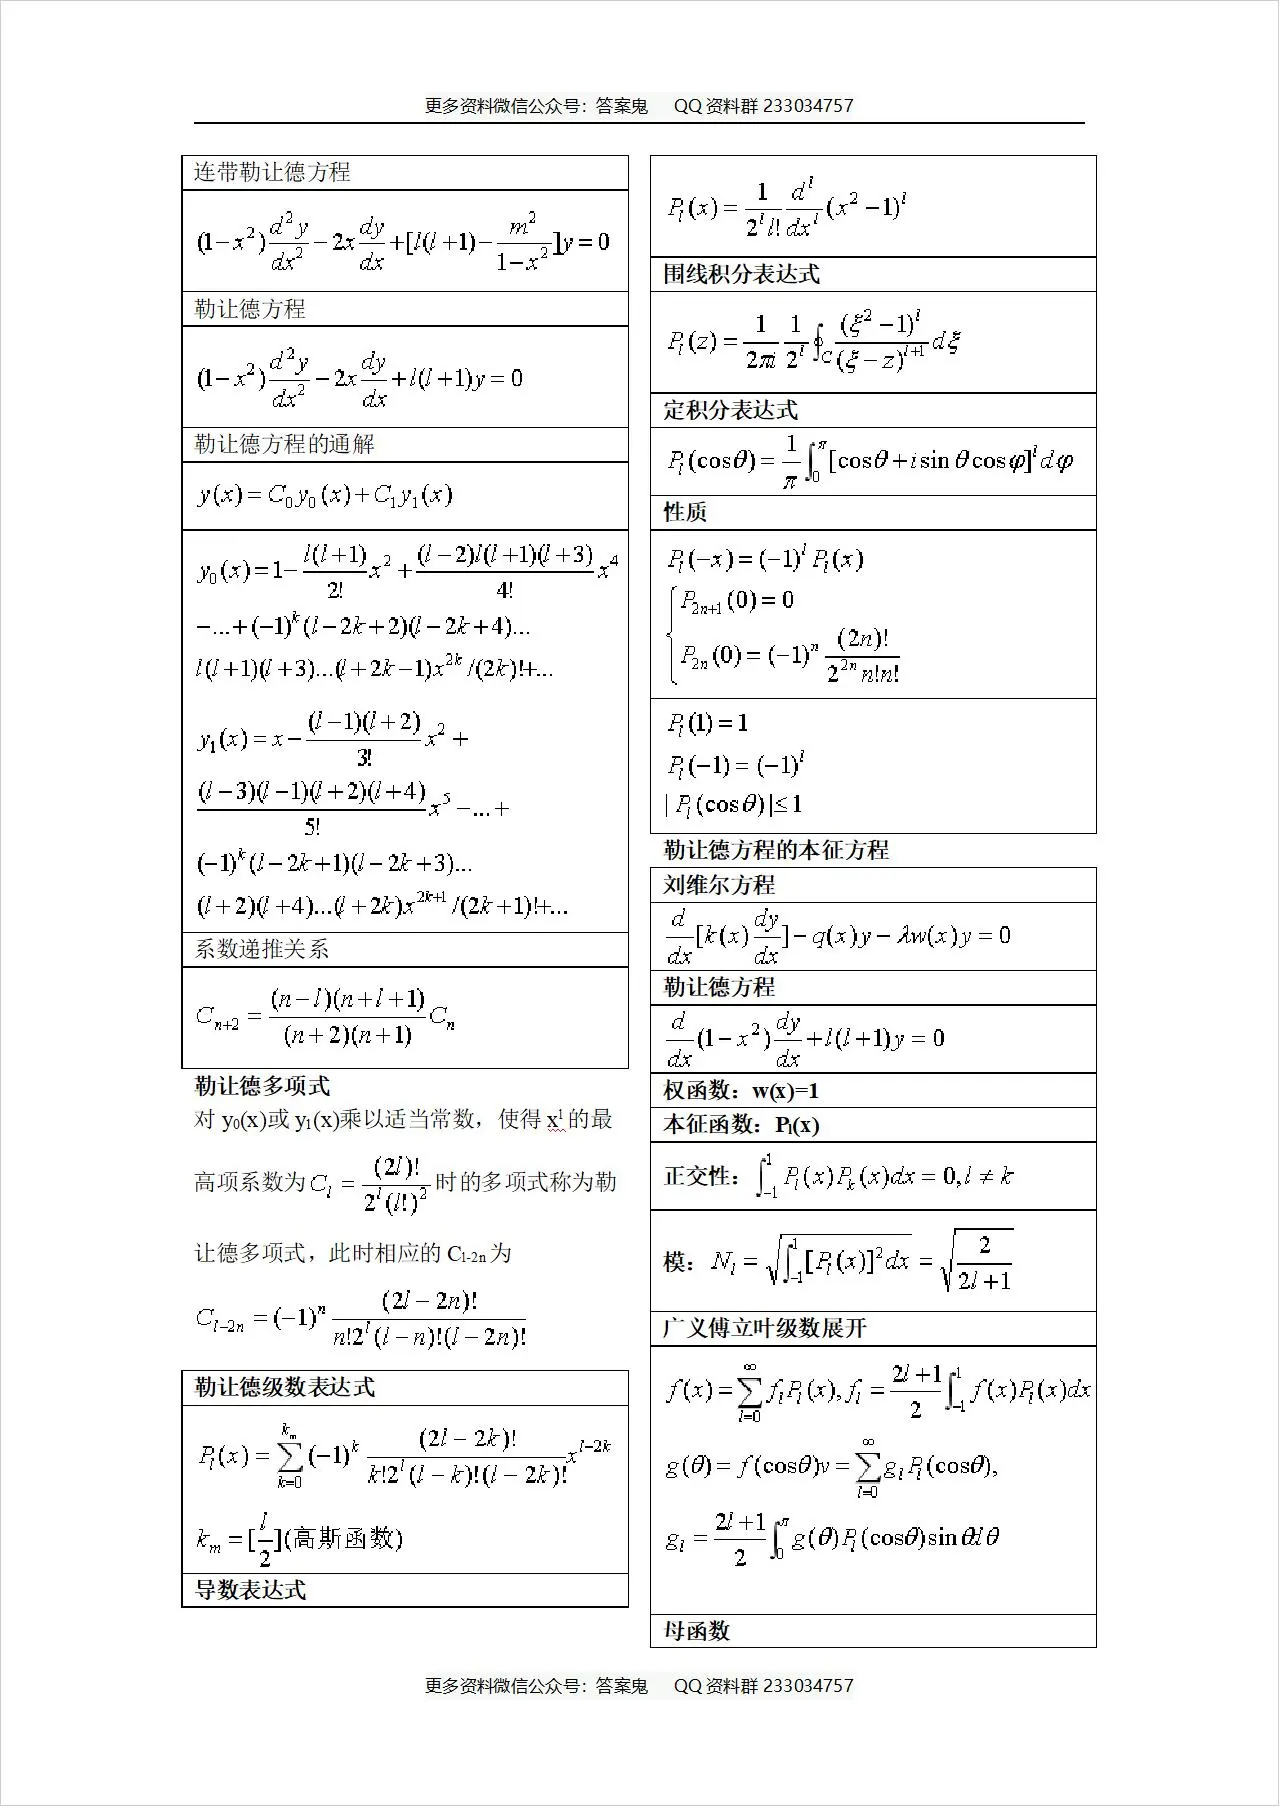 更多资料微信公众号：答案鬼 QQ资料群233034757
连带勒让德方程
(1−x²)d²y/dx²−2x dy/dx+[l(l+1)−m²/(1−x²)]y=0
勒让德方程
(1−x²)d²y/dx²−2x dy/dx+l(l+1)y=0
勒让德方程的通解
y(x)=C₀y₀(x)+C₁y₁(x)
y₀(x)=1−l(l+1)/2! x²+(l−2)l(l+1)(l+3)/4! x⁴
−...+(−1)^k(l−2k+2)(l−2k+4)...
l(l+1)(l+3)...(l+2k−1)x^{2k}/(2k)!+...
y₁(x)=x−(l−1)(l+2)/3! x²+
(l−3)(l−1)(l+2)(l+4)/5! x⁵−...+
(−1)^k(l−2k+1)(l−2k+3)...
(l+2)(l+4)...(l+2k)x^{2k+1}/(2k+1)!+...
系数递推关系
C_{n+2}=(n−l)(n+l+1)/((n+2)(n+1)) C_n
勒让德多项式
对y₀(x)或y₁(x)乘以适当常数，使得x^l的最
高项系数为C_l=(2l)!/(2^l(l!)²)时的多项式称为勒
让德多项式，此时相应的C_{l-2n}为
C_{l−2n}=(−1)^n (2l−2n)!/(n!2^l(l−n)!(l−2n)!)
勒让德级数表达式
P_l(x)=∑_{k=0}^{k_m}(−1)^k (2l−2k)!/(k!2^l(l−k)!(l−2k)!) x^{l−2k}
k_m=[l/2](高斯函数)
导数表达式
P_l(x)=1/(2^l l!) d^l/dx^l (x²−1)^l
围线积分表达式
P_l(z)=1/(2πi) 1/2^l ∮_C (ξ²−1)^l/(ξ−z)^{l+1} dξ
定积分表达式
P_l(cosθ)=1/π ∫_0^π [cosθ+i sinθcosφ]^l dφ
性质
P_l(−x)=(−1)^l P_l(x)
{P_{2n+1}(0)=0
P_{2n}(0)=(−1)^n (2n)!/(2^{2n}n!n!)
P_l(1)=1
P_l(−1)=(−1)^l
|P_l(cosθ)|≤1
勒让德方程的本征方程
刘维尔方程
d/dx[k(x)dy/dx]−q(x)y−λw(x)y=0
勒让德方程
d/dx(1−x²)dy/dx+l(l+1)y=0
权函数：w(x)=1
本征函数：P_l(x)
正交性：∫_{−1}^{1}P_l(x)P_k(x)dx=0,l≠k
模：N_l=√(∫_{−1}^{1}[P_l(x)]²dx)=√(2/(2l+1))
广义傅立叶级数展开
f(x)=∑_{l=0}^{∞}f_lP_l(x),f_l=(2l+1)/2 ∫_{−1}^{1}f(x)P_l(x)dx
g(θ)=f(cosθ)v=∑_{l=0}^{∞}g_lP_l(cosθ),
g_l=(2l+1)/2 ∫_0^π g(θ)P_l(cosθ)sinθdθ
母函数
更多资料微信公众号：答案鬼 QQ资料群233034757